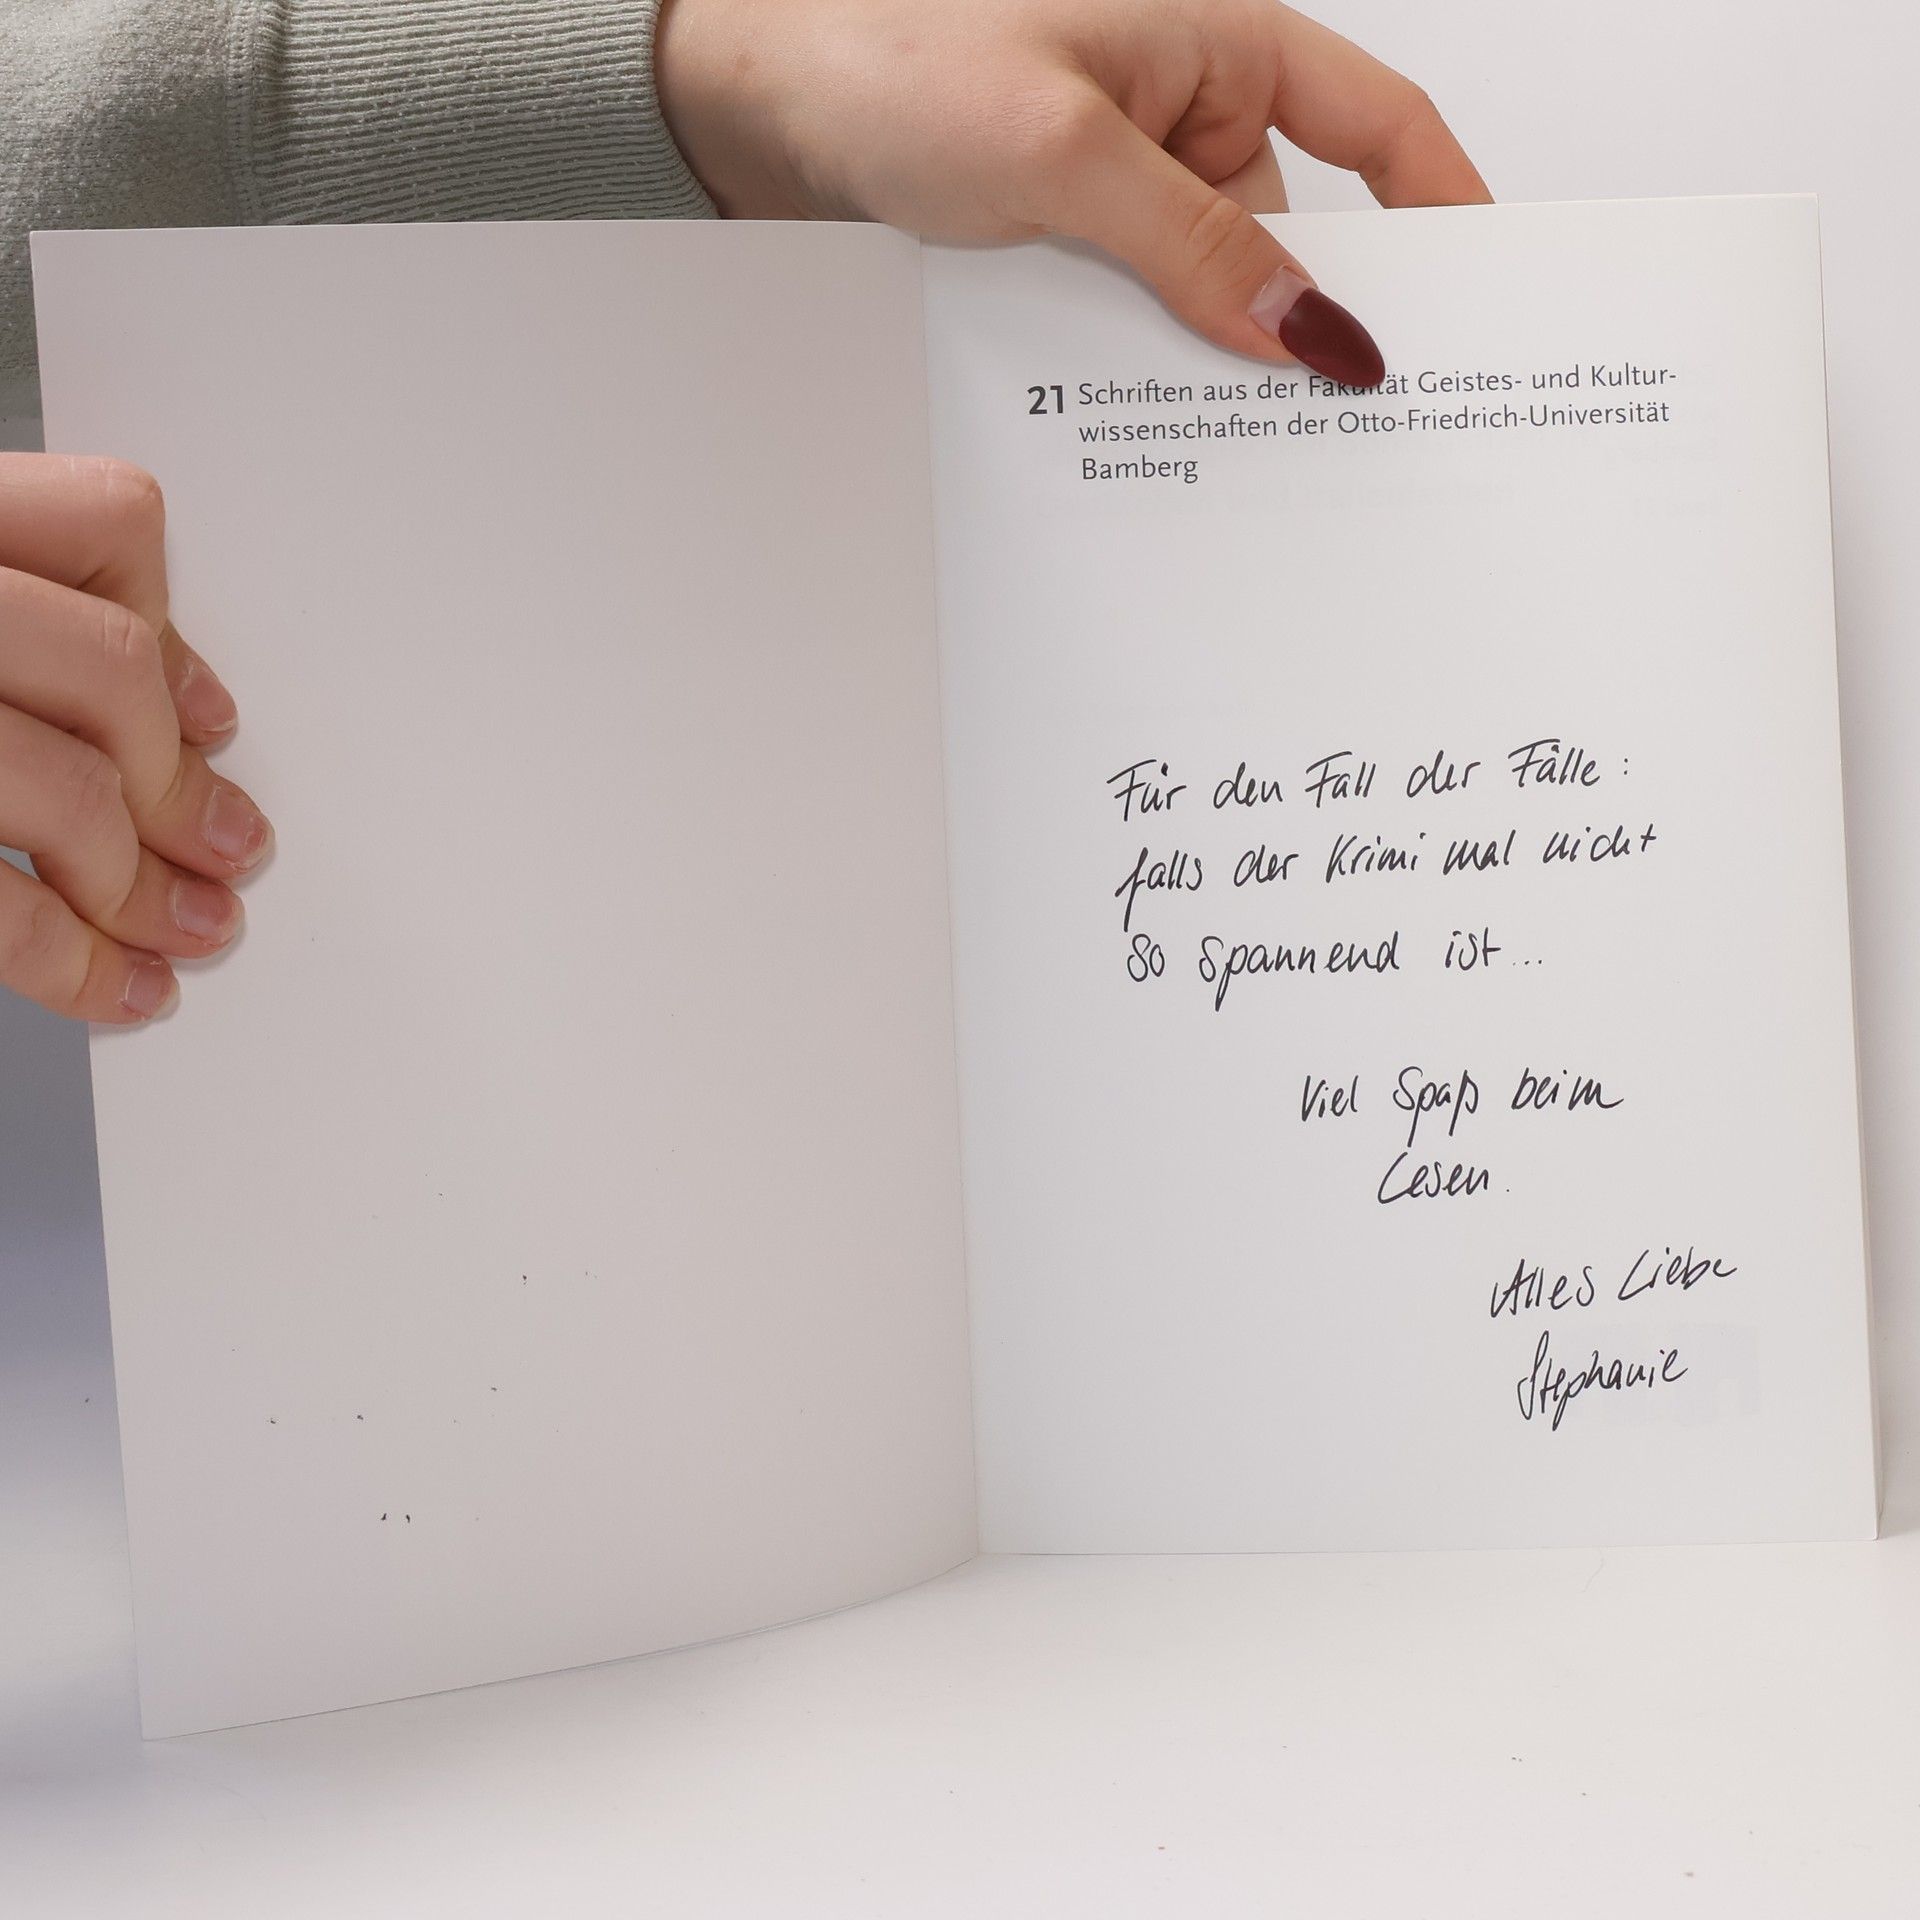 21 Schriften aus der Fakultät Geistes- und Kultur-
wissenschaften der Otto-Friedrich-Universität
Bamberg
Für den Fall der Fälle:
falls der Krimi mal nicht
so spannend ist...
Viel Spaß beim
Lesen.
Alles Liebe
Stephanie